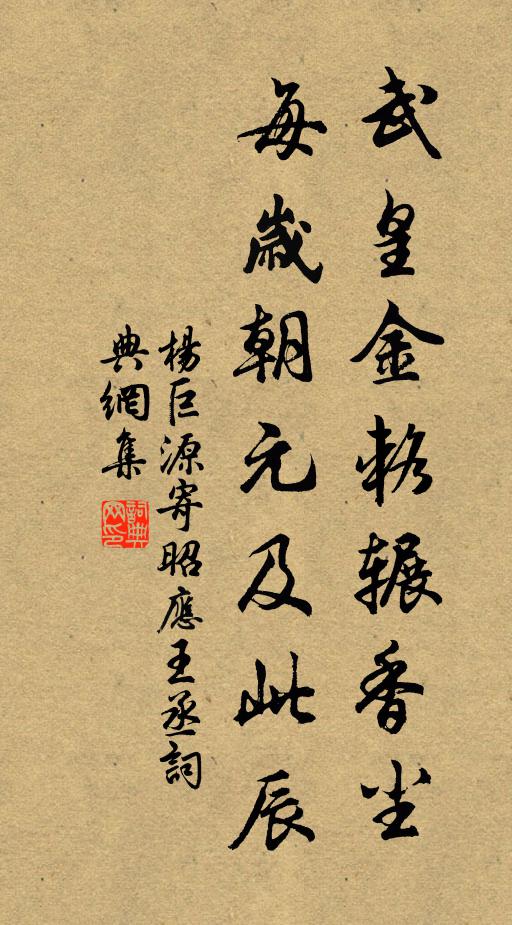 武皇金輅辗香尘
每歲朝元及此辰
楊巨源寄昭應王丞詞
典網集
詞典
网印